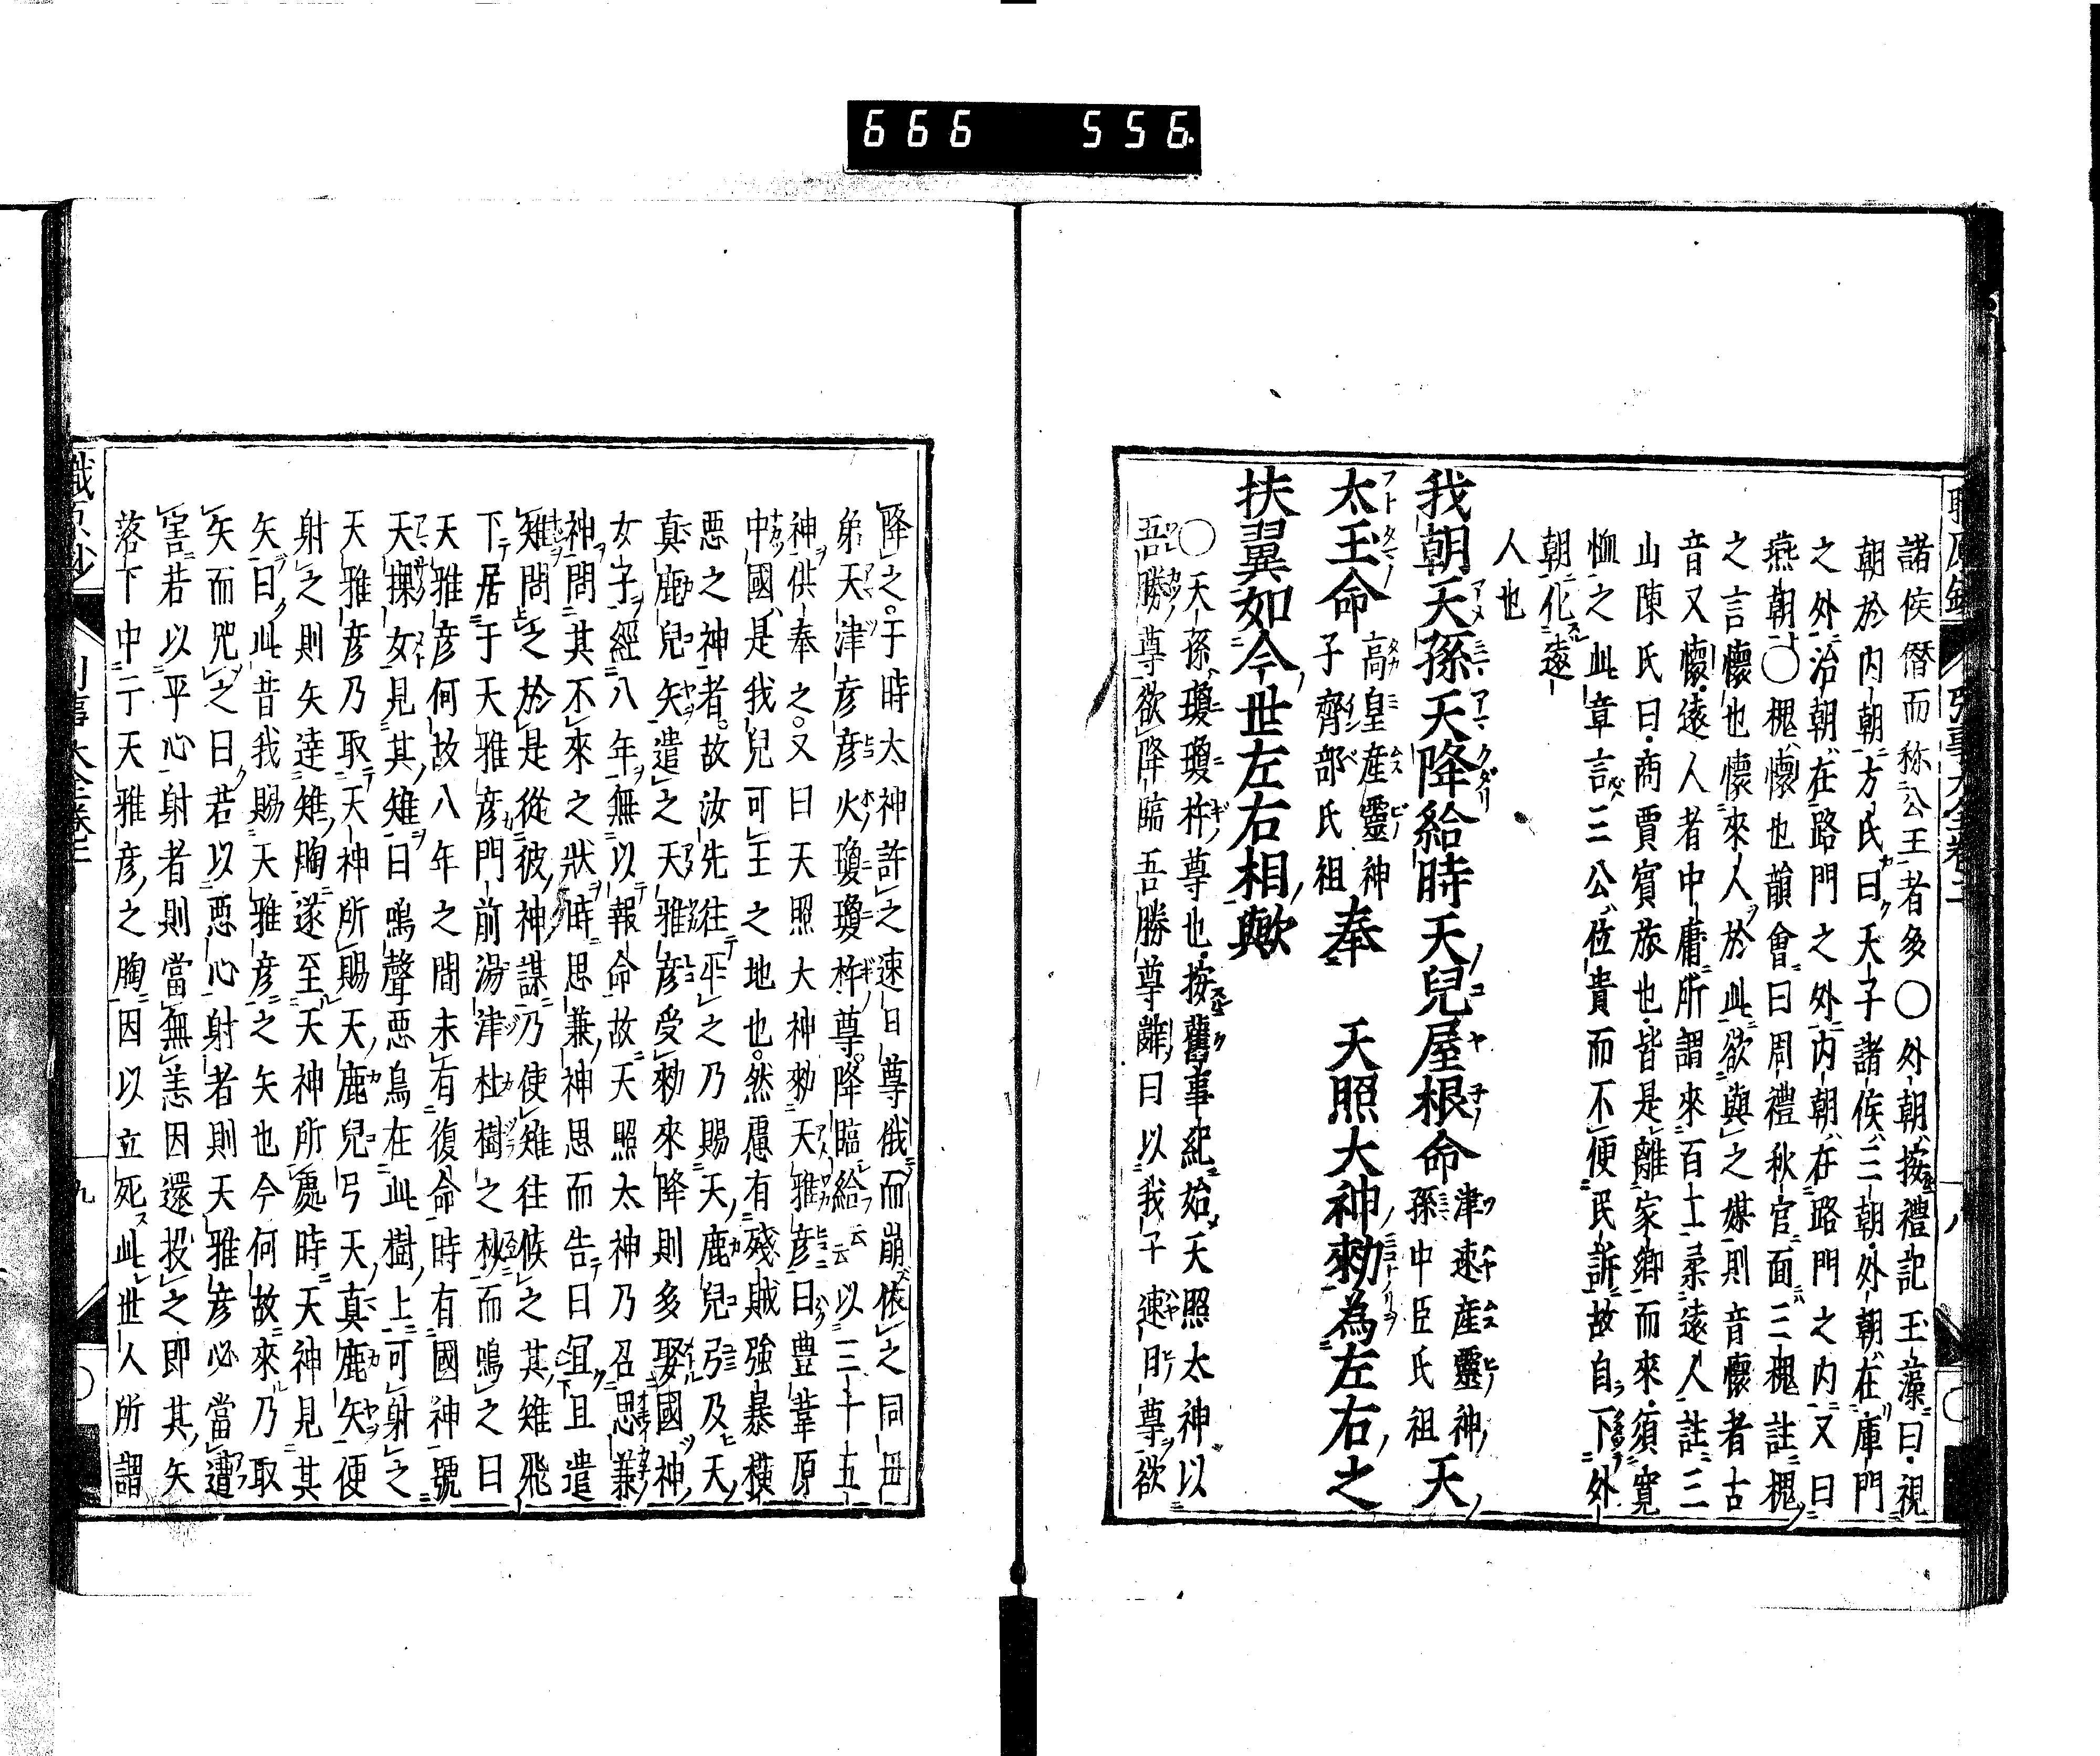 666 556
諸侯僭而称公王者多〇外朝按禮記玉藻曰視
朝於内朝方氏曰天子諸侯三朝外朝在庫門
之外治朝在路門之外内朝在路門之内又曰
燕朝〇槐懷也韻會曰周禮秋官面三槐註槐
之言懷也懷來人於此欲與之媒則音懷者古
音又懷遠人者中庸所謂來百工柔遠人註三
山陳氏曰商賈賓旅也皆是離家郷而來須寛
恤之此章言三公位貴而不便民訴故自下外
朝化遠
人也
我朝天孫天降給時天兒屋根命津速産靈神天
孫中臣氏祖
太玉命高皇産靈神
子齊部氏祖奉 天照大神勅為左右之
扶翼如今世左右相歟
〇天孫瓊瓊杵尊也按舊事紀始天照太神以
吾勝尊欲降臨吾勝尊辭曰以我子速日尊欲
降之于時太神許之速日尊俄而崩依之同母
弟天津彦彦火瓊瓊杵尊降臨給云云以三十五
神供奉之又曰天照大神勅天雅彦曰豊葦原
中國是我兒可王之地也然慮有殘賊強暴横
惡之神者故汝先往平之乃賜天鹿兒弓及天
真鹿兒矢遣之天雅彦受勅來降則多娶國神
女子經八年無以報命故天照太神乃召思兼
神問其不來之狀時思兼神思而告曰宜且遣
雉問之於是從彼神謀乃使雉往候之其雉飛
下居于天雅彦門前湯津杜樹之杪而鳴之曰
天雅彦何故八年之間未有復命時有國神號
天探女見其雉曰鳴聲惡鳥在此樹上可射之
天雅彦乃取天神所賜天鹿兒弓天真鹿矢便
射之則矢達雉胸遂至天神所處時天神見其
矢曰此昔我賜天雅彦之矢也今何故來乃取
矢而咒之曰若以惡心射者則天雅彦必當遭
害若以平心射者則當無恙因還投之即其矢
落下中于天雅彦之胸因以立死此世人所謂
九